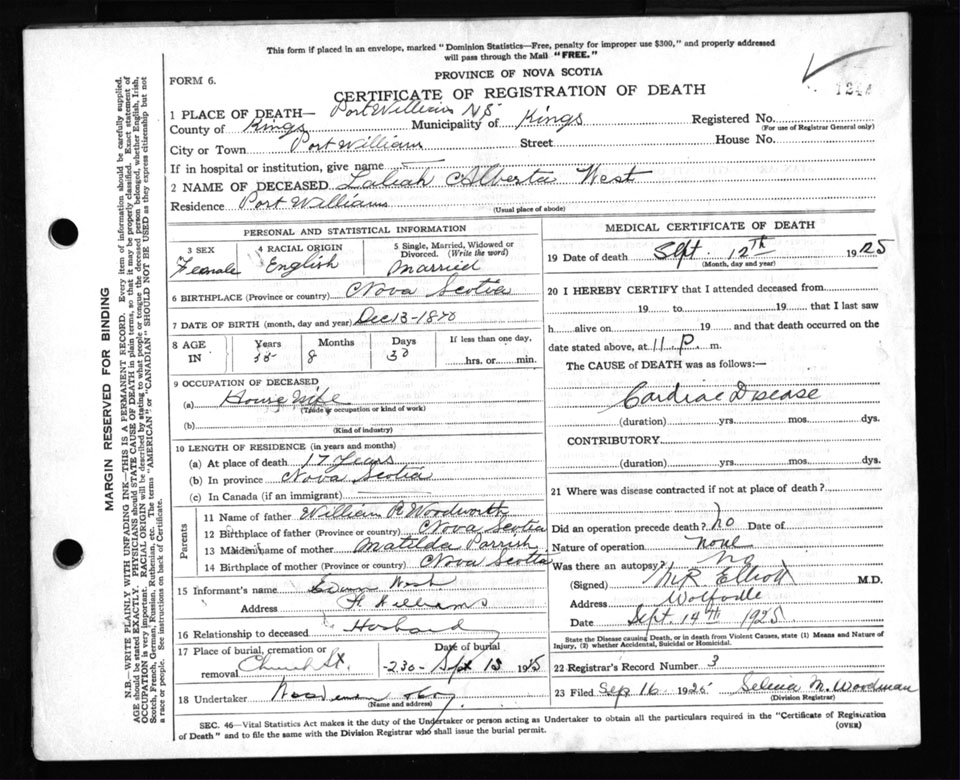 This form if placed in an envelope, marked "Dominion Statistics—Free, penalty for improper use $300," and properly addressed
will pass through the Mail "FREE."
FORM 6.
PROVINCE OF NOVA SCOTIA
CERTIFICATE OF REGISTRATION OF DEATH
1 PLACE OF DEATH— Port Williams NS
County of Kings Municipality of Kings Registered No.
(For use of Registrar General only)
City or Town Port Williams Street House No.
If in hospital or institution, give name —
2 NAME OF DECEASED Laliah Alberta West
Residence Port Williams
(Usual place of abode)
PERSONAL AND STATISTICAL INFORMATION
3 SEX 4 RACIAL ORIGIN 5 Single, Married, Widowed or
Divorced. (Write the word)
Female English Married
6 BIRTHPLACE (Province or country) Nova Scotia
7 DATE OF BIRTH (month, day and year) Dec 13-1870
8 AGE Years Months Days If less than one day,
IN 8 30 hrs. or min.
9 OCCUPATION OF DECEASED
(a) House Wife
(Trade or occupation or kind of work)
(b)
(Kind of industry)
10 LENGTH OF RESIDENCE (in years and months)
(a) At place of death 17 Years
(b) In province Nova Scotia
(c) In Canada (if an immigrant) —
Parents
11 Name of father William B Woodworth
12 Birthplace of father (Province or country) Nova Scotia
13 Maiden name of mother Matilda Parrish
14 Birthplace of mother (Province or country) Nova Scotia
15 Informant's name West
Address Pt Williams
16 Relationship to deceased Husband
17 Place of burial, cremation or Date of burial
removal Church St. -2.30- Sept 1925
18 Undertaker
(Name and address)
MEDICAL CERTIFICATE OF DEATH
19 Date of death Sept 12th 1925
(Month, day and year)
20 I HEREBY CERTIFY that I attended deceased from
19 to 19 that I last saw
h alive on 19 and that death occurred on
date stated above, at 11 P. m.
The CAUSE of DEATH was as follows:—
Cardiac Disease
(duration) yrs. mos. dys.
CONTRIBUTORY
(duration) yrs. mos. dys.
21 Where was disease contracted if not at place of death?
Did an operation precede death? no Date of
Nature of operation none
Was there an autopsy? No
(Signed) MR Elliott M.D.
Address Wolfville
Date Sept. 14th 1925
State the Disease causing Death, or in death from Violent Causes, state (1) Means and Nature of
Injury, (2) whether Accidental, Suicidal or Homicidal.
22 Registrar's Record Number 3
23 Filed Sep 16 1925 Selena M. Woodman
(Division Registrar)
SEC. 46—Vital Statistics Act makes it the duty of the Undertaker or person acting as Undertaker to obtain all the particulars required in the "Certificate of Registration
of Death" and to file the same with the Division Registrar who shall issue the burial permit.
(OVER)
MARGIN RESERVED FOR BINDING
N.B.—WRITE PLAINLY WITH UNFADING INK—THIS IS A PERMANENT RECORD. Every item of information should be carefully supplied.
AGE should be stated EXACTLY. PHYSICIANS should STATE CAUSE OF DEATH in plain terms, so that it may be properly classified. Exact statement of
OCCUPATION is very important. RACIAL ORIGIN will be described by stating to what people or tongue the deceased person belonged, whether English, Irish,
Scotch, French, German, Russian, Ruthenian, etc. The terms "AMERICAN" or "CANADIAN" SHOULD NOT BE USED as they express citizenship but not
a race or people. See instructions on back of Certificate.